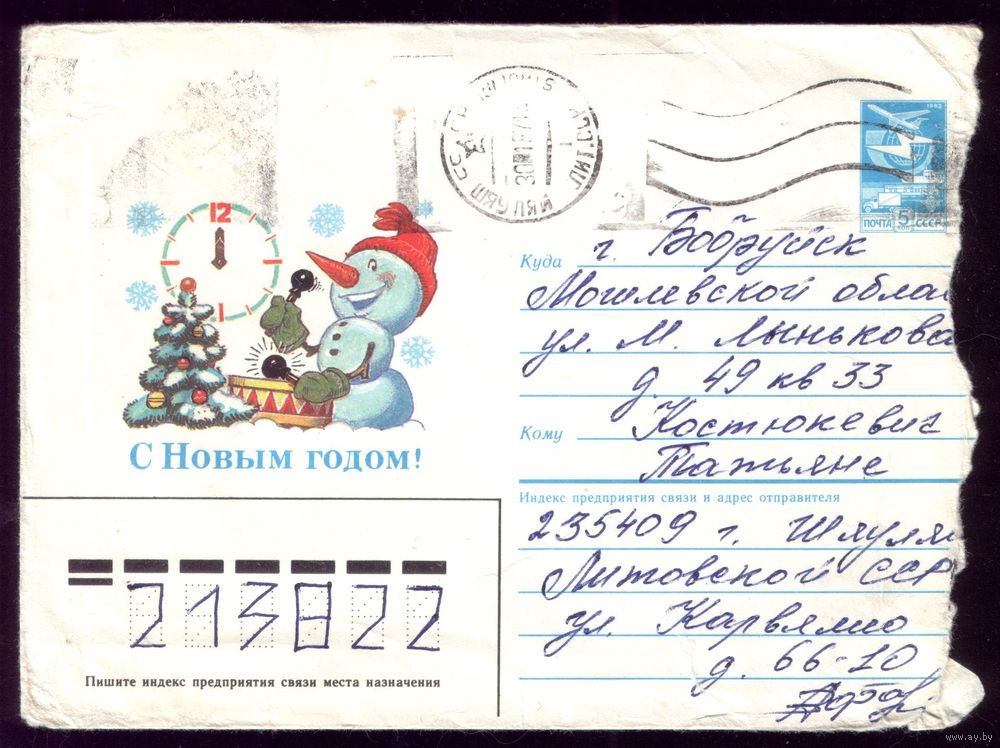 1982
ПОЧТА 5 КОП СССР
12
С Новым годом!
Куда г. Бобруйск
Могилевской облас
ул. М. Лынькова
д. 49 кв 33
Кому Костюкевич
Татьяне
Индекс предприятия связи и адрес отправителя
235409 г. Шяуляй
Литовской ССР
ул. Карвялио
д. 66-10
213822
Пишите индекс предприятия связи места назначения
www.ay.by